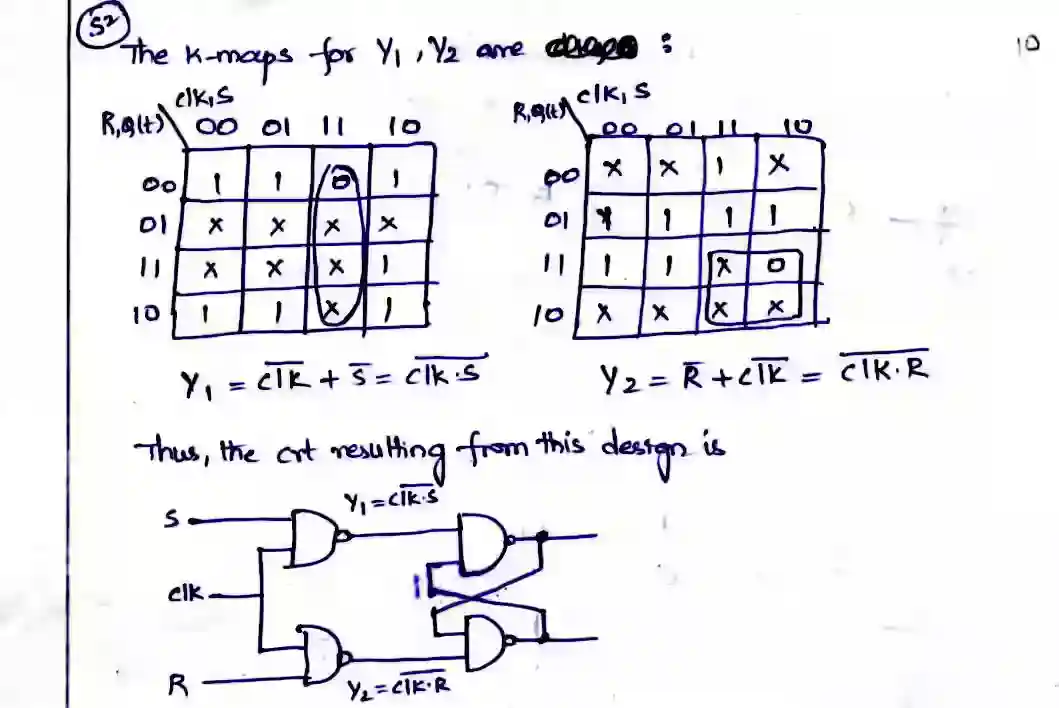 S2
The K-maps for Y₁, Y₂ are :
10
clk, S
R, Q(t) 00 01 11 10
00 1 1 0 1
01 x x x x
11 x x x 1
10 1 1 x 1
Y₁ = \overline{clk} + \overline{S} = \overline{clk·S}
clk, S
R, Q(t) 00 01 11 10
00 x x 1 x
01 1 1 1
11 1 1 x 0
10 x x x x
Y₂ = \overline{R} + \overline{clk} = \overline{clk·R}
Thus, the crt resulting from this design is
Y₁ = \overline{clk·S}
S
clk
R
Y₂ = \overline{clk·R}